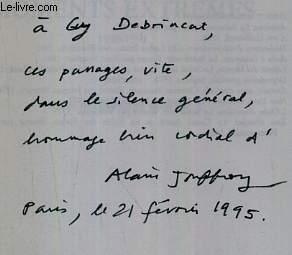 Le-livre.com
à Guy Debrincat,
ces passages, vite,
dans le silence général,
hommage bien cordial d'
Alain Jouffroy
Paris, le 21 février 1995.